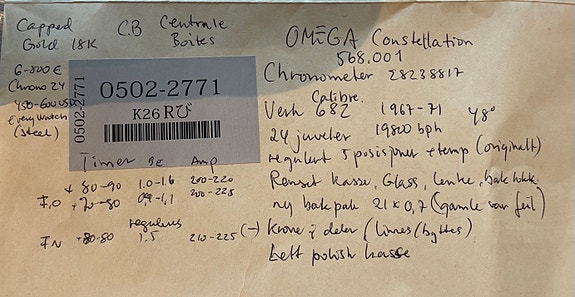 Capped
Gold 18K
C.B Centrale
Boites
6-800 €
Chrono 24
450-600 USD
EveryWatch
(steel)
0502-2771
0502-2771
K26Rび
Timer BE Amp
+ 80-90 1.0-1.6 200-220
F.O + 70-80 0.9-1.1 200-225
regulerus
FN -80-80 1.5 210-225 (-)
OMEGA Constellation
568.001
Chronometer 28238817
Calibre
Verk 682 1967-71 48°
24 juveler 19800 bph
regulert 5 posisjoner + temp (originalt)
Renset kasse, Glass, lenke, bak
ny bakpak 21 x 0,7 (gamle var feil)
Krone i deler (limes/byttes)
Lett polish kasse